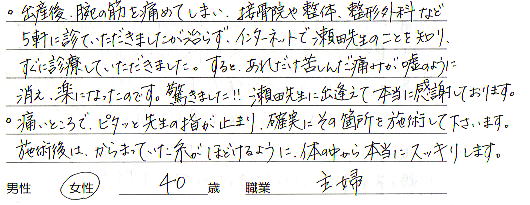 ・出産後、腕の筋を痛めてしまい、接骨院や整体、整形外科など
5軒に診ていただきましたが治らず、インターネットで瀬田先生のことを知り、
すぐに診療していただきました。すると、あれだけ苦しんだ痛みが嘘のように
消え、楽になったのです。驚きました!! 瀬田先生に出逢えて本当に感謝しております。
・痛いところで、ピタッと先生の指が止まり、確実にその箇所を施術して下さいます。
施術後は、からまっていた糸がほどけるように、体の中から本当にスッキリします。
男性 女性 40 歳 職業 主婦